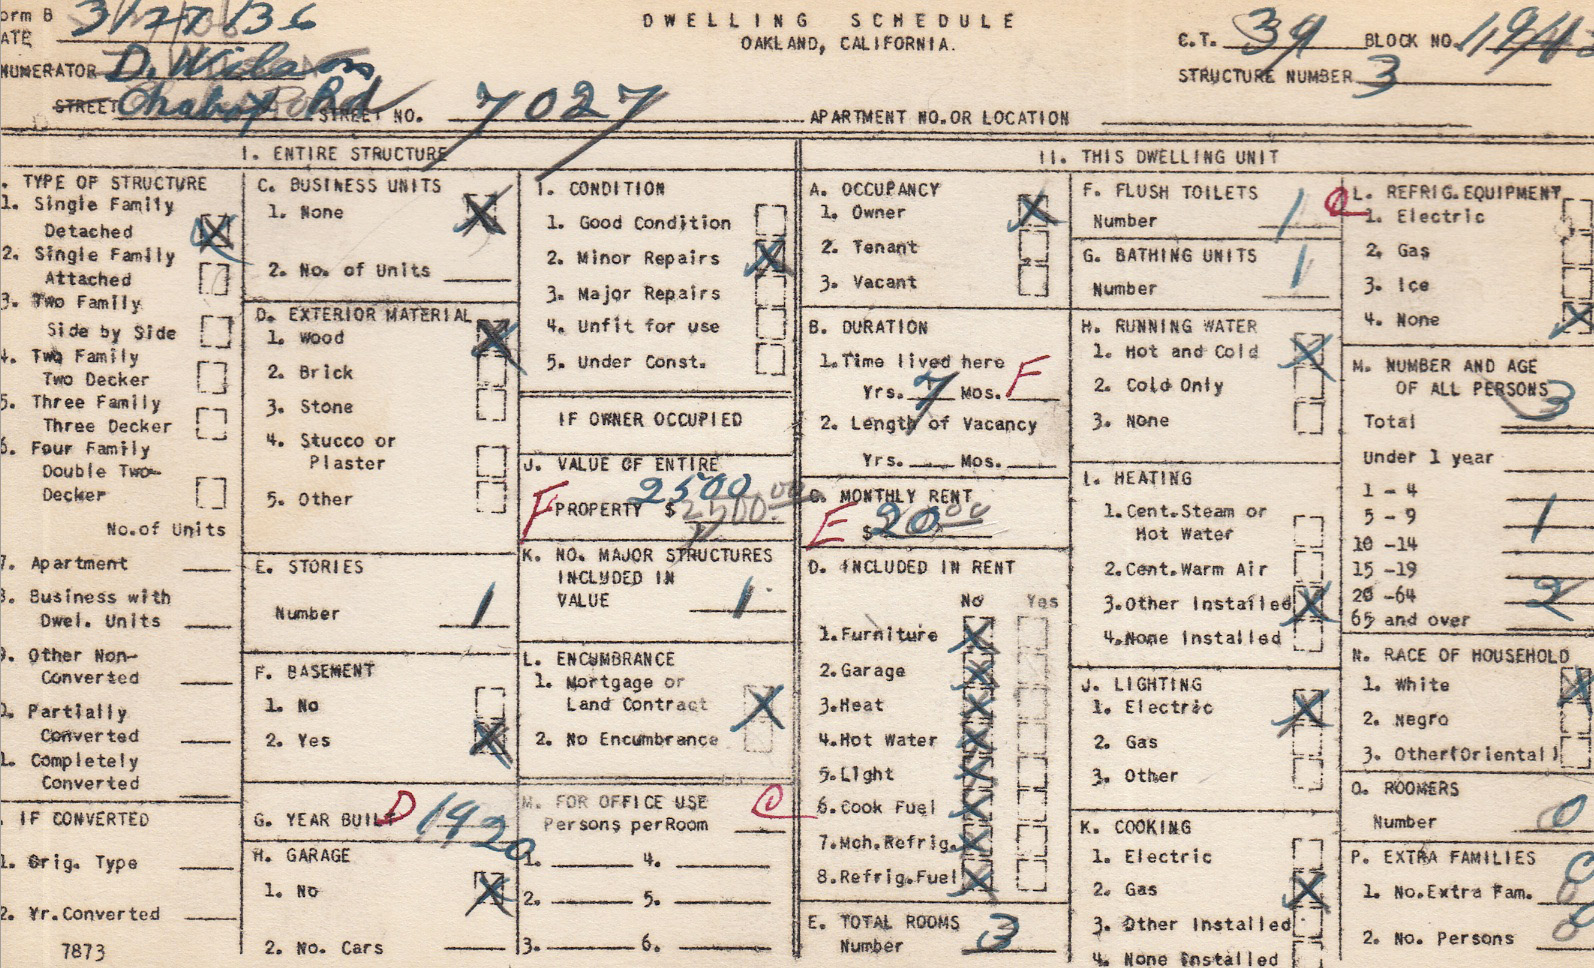 orm B
DWELLING SCHEDULE
OAKLAND, CALIFORNIA.
ATE 3/27/36
C.T. 39 BLOCK NO.
NUMERATOR D. Wilson
STRUCTURE NUMBER 3
STREET Chabot Rd STREET NO. 7027 APARTMENT NO. OR LOCATION
I. ENTIRE STRUCTURE
. TYPE OF STRUCTURE
1. Single Family
Detached X
2. Single Family
Attached
3. Two Family
Side by Side
4. Two Family
Two Decker
5. Three Family
Three Decker
6. Four Family
Double Two-
Decker
No.of Units
7. Apartment
8. Business with
Dwel. Units
9. Other Non-
Converted
0. Partially
Converted
1. Completely
Converted
. IF CONVERTED
1. Orig. Type
2. Yr.Converted
7873
C. BUSINESS UNITS
1. None X
2. No. of Units
D. EXTERIOR MATERIAL
1. Wood X
2. Brick
3. Stone
4. Stucco or
Plaster
5. Other
E. STORIES
Number 1
F. BASEMENT
1. No
2. Yes X
G. YEAR BUILT D 1920
H. GARAGE
1. No X
2. No. Cars
I. CONDITION
1. Good Condition
2. Minor Repairs X
3. Major Repairs
4. Unfit for use
5. Under Const.
IF OWNER OCCUPIED
J. VALUE OF ENTIRE
F PROPERTY $ 2500 2500.00
K. NO. MAJOR STRUCTURES
INCLUDED IN
VALUE 1
L. ENCUMBRANCE
1. Mortgage or
Land Contract X
2. No Encumbrance
M. FOR OFFICE USE
Persons perRoom
1. 4.
2. 5.
3. 6.
II. THIS DWELLING UNIT
A. OCCUPANCY
1. Owner X
2. Tenant
3. Vacant
B. DURATION
1.Time lived here
Yrs. 7 Mos. F
2. Length of Vacancy
Yrs. Mos.
C. MONTHLY RENT
E $ 20.00
D. INCLUDED IN RENT
No Yes
1.Furniture X
2.Garage X
3.Heat X
4.Hot Water X
5.Light X
6.Cook Fuel X
7.Mch.Refrig. X
8.Refrig.Fuel X
E. TOTAL ROOMS
Number 3
F. FLUSH TOILETS
Number 1
G. BATHING UNITS
Number 1
H. RUNNING WATER
1. Hot and Cold X
2. Cold Only
3. None
I. HEATING
1.Cent.Steam or
Hot Water
2.Cent.Warm Air
3.Other Installed X
4.None Installed
J. LIGHTING
1. Electric X
2. Gas
3. Other
K. COOKING
1. Electric
2. Gas X
3. Other Installed
4. None Installed
L. REFRIG.EQUIPMENT
1. Electric
2. Gas
3. Ice
4. None X
M. NUMBER AND AGE
OF ALL PERSONS
Total 3
Under 1 year
1 - 4
5 - 9 1
10 -14
15 -19
20 -64 2
65 and over
N. RACE OF HOUSEHOLD
1. White X
2. Negro
3. Other(Oriental)
O. ROOMERS
Number 0
P. EXTRA FAMILIES
1. No.Extra Fam. 0
2. No. Persons 0